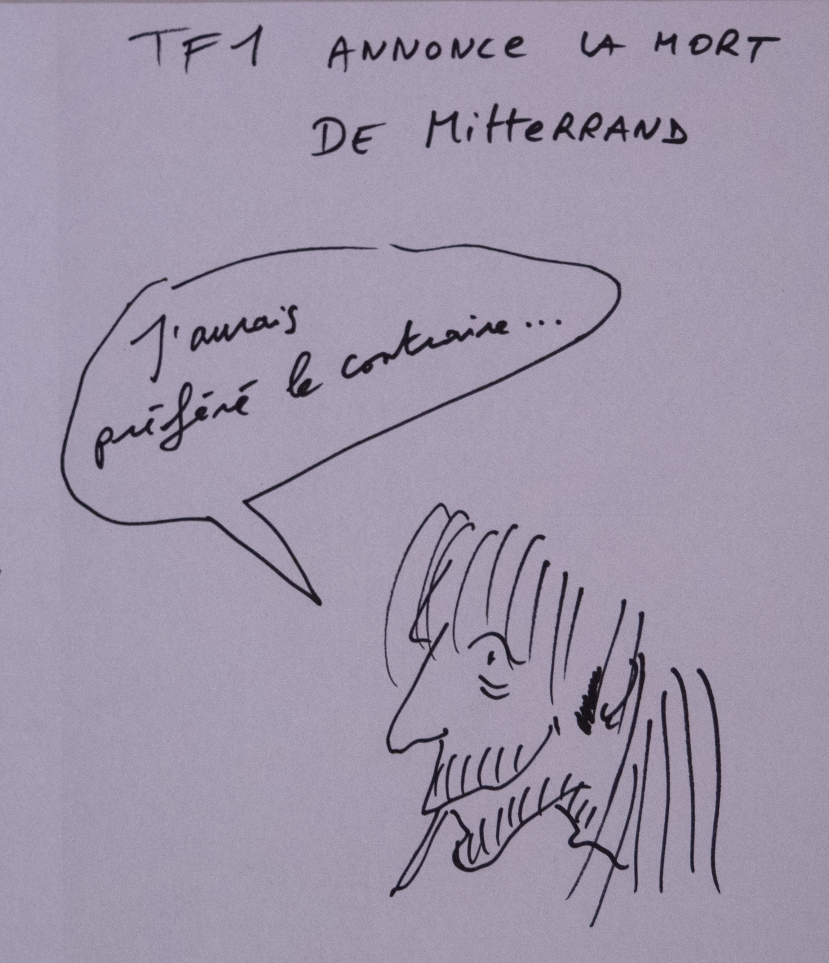 TF1 ANNONCE LA MORT
DE MITTERRAND
J'aurais
préféré le contraire...